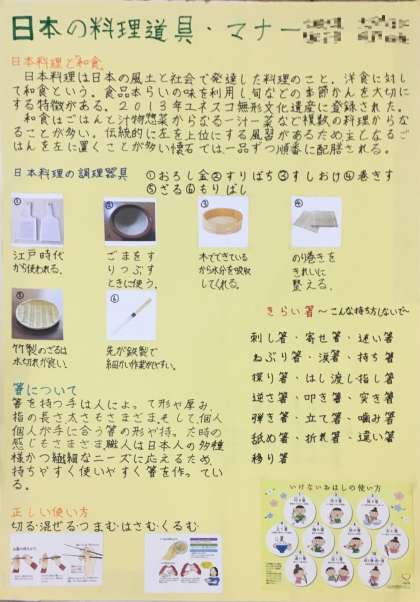 日本の料理道具・マナー
日本料理と和食
日本料理は日本の風土と社会で発達した料理のこと。洋食に対し
て和食という。食品本らいの味を利用し旬などの季節かんを大切に
する特徴がある。2013年ユネスコ無形文化遺産に登録された。
和食はごはんと汁物惣菜からなる一汁一菜など複数の料理からな
ることが多い。伝統的に左を上位にする風習があるため主となるご
はんを左に置くことが多い懐石では一品ずつ順番に配膳される。
日本料理の調理器具
①おろし金②すりばち③すしおけ④巻きす
⑤ざる⑥もりばし
①
②
③
④
江戸時代
から使われる。
ごまをす
りつぶす
ときに使う。
木でできている
から水分を吸収
してくれる。
のり巻きを
きれいに
整える。
⑤
⑥
竹製のざるは
水切れが良い。
先が鉄製で
細かい作業がしやすい。
きらい箸〜こんな持ち方しないで〜
刺し箸・寄せ箸・迷い箸
ねぶり箸・涙箸・持ち箸
探り箸・はし渡し指し箸
逆さ箸・叩き箸・突き箸
弾き箸・立て箸・噛み箸
舐め箸・折れ箸・違い箸
移り箸
箸について
箸を持つ手は人によって形や厚み、
指の長さ太さもさまざま。そして、個人
個人が手に合う箸の形や持った時の
感じもさまざま。職人は日本人の多種
様かつ繊細なニーズに応えるため、
持ちやすく使いやすく箸を作ってい
る。
正しい使い方
切る・混ぜる・つまむ・はさむ・くるむ
いけないおはしの使い方